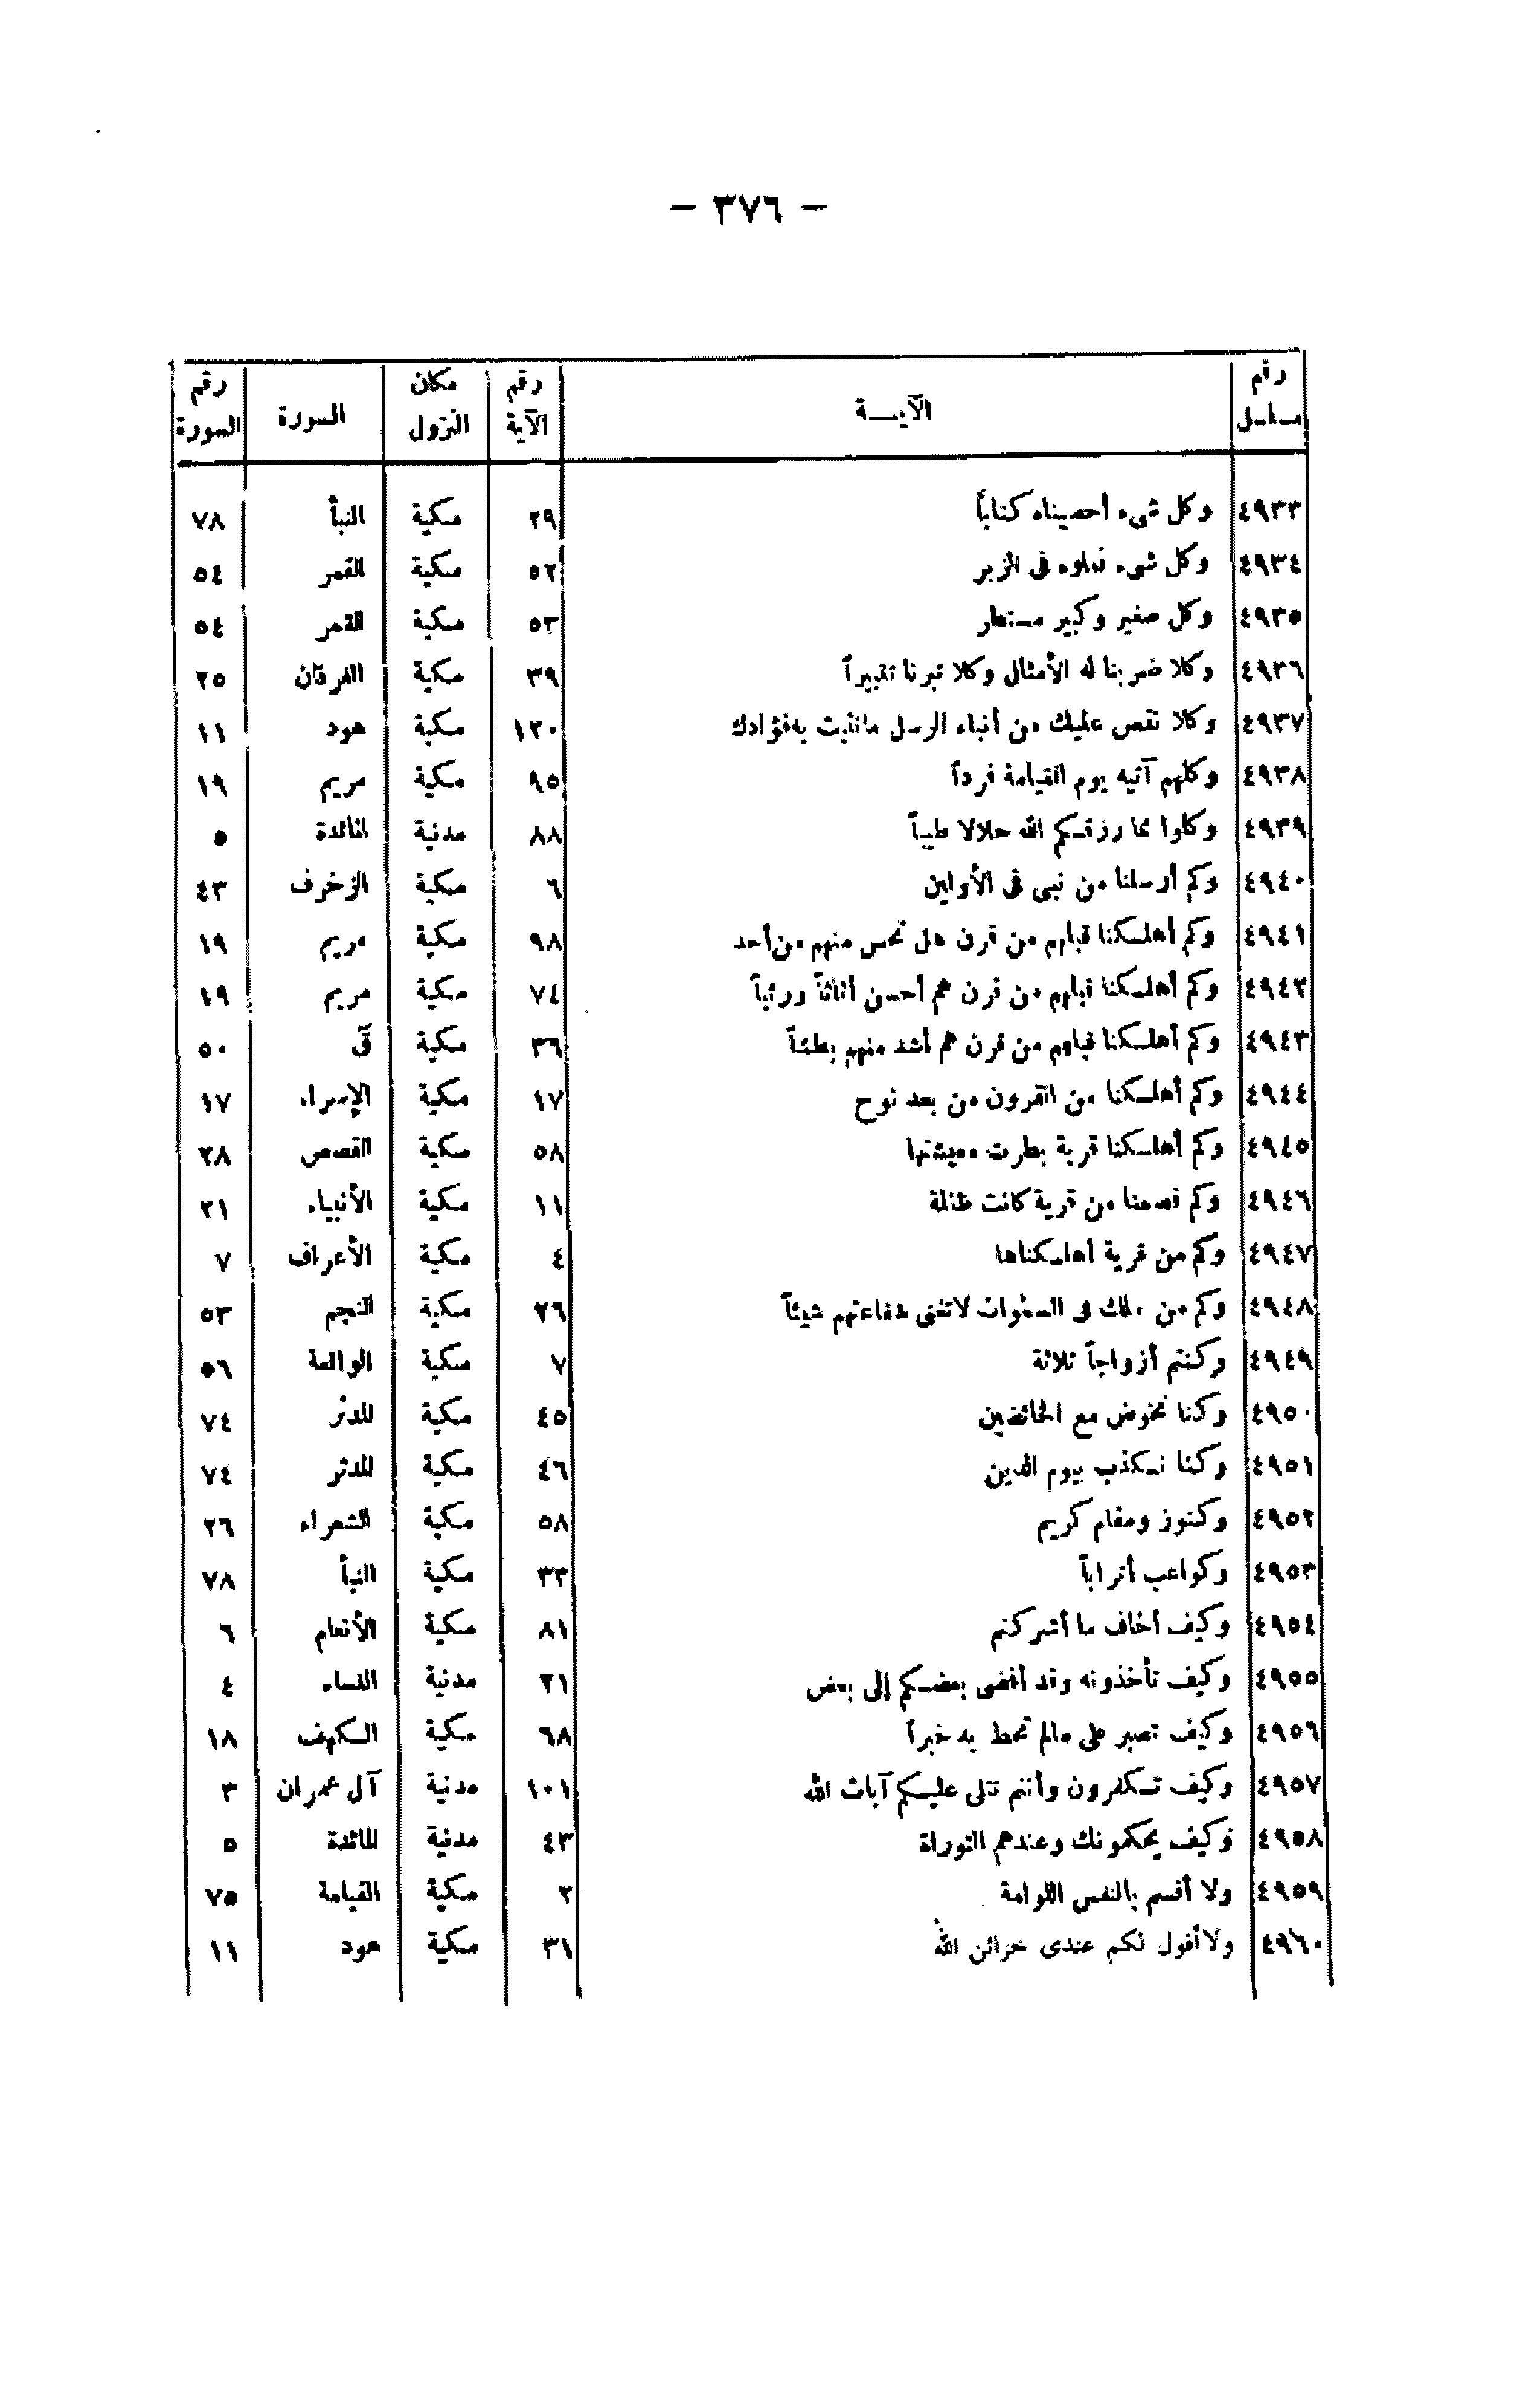 — ٣٧٦ —
رقم مسلسل | الآيـــة | رقم الآية | مكان النزول | السورة | رقم السورة
٤٩٣٣ | وكل شيء أحصيناه كتاباً | ٢٩ | مكية | النبأ | ٧٨
٤٩٣٤ | وكل شيء فعلوه في الزبر | ٥٢ | مكية | القمر | ٥٤
٤٩٣٥ | وكل صغير وكبير مستطر | ٥٣ | مكية | القمر | ٥٤
٤٩٣٦ | وكلا ضربنا له الأمثال وكلا تبرنا تتبيراً | ٣٩ | مكية | الفرقان | ٢٥
٤٩٣٧ | وكلا نقص عليك من أنباء الرسل مانثبت به فؤادك | ١٢٠ | مكية | هود | ١١
٤٩٣٨ | وكلهم آتيه يوم القيامة فرداً | ٩٥ | مكية | مريم | ١٩
٤٩٣٩ | وكلوا مما رزقكم الله حلالا طيباً | ٨٨ | مدنية | المائدة | ٥
٤٩٤٠ | وكم أرسلنا من نبى فى الأولين | ٦ | مكية | الزخرف | ٤٣
٤٩٤١ | وكم أهلكنا قبلهم من قرن هل تحس منهم من أحد | ٩٨ | مكية | مريم | ١٩
٤٩٤٢ | وكم أهلكنا قبلهم من قرن هم أحسن أثاثاً ورئياً | ٧٤ | مكية | مريم | ١٩
٤٩٤٣ | وكم أهلكنا قبلهم من قرن هم أشد منهم بطشاً | ٣٦ | مكية | قٓ | ٥٠
٤٩٤٤ | وكم أهلكنا من القرون من بعد نوح | ١٧ | مكية | الإسراء | ١٧
٤٩٤٥ | وكم أهلكنا قرية بطرت معيشتها | ٥٨ | مكية | القصص | ٢٨
٤٩٤٦ | وكم قصمنا من قرية كانت ظالمة | ١١ | مكية | الأنبياء | ٢١
٤٩٤٧ | وكم من قرية أهلكناها | ٤ | مكية | الأعراف | ٧
٤٩٤٨ | وكم من ملك فى السموات لاتغنى شفاعتهم شيئاً | ٢٦ | مكية | النجم | ٥٣
٤٩٤٩ | وكنتم أزواجاً ثلاثة | ٧ | مكية | الواقعة | ٥٦
٤٩٥٠ | وكنا نخوض مع الخائضين | ٤٥ | مكية | المدثر | ٧٤
٤٩٥١ | وكنا نكذب بيوم الدين | ٤٦ | مكية | المدثر | ٧٤
٤٩٥٢ | وكنوز ومقام كريم | ٥٨ | مكية | الشعراء | ٢٦
٤٩٥٣ | وكواعب أتراباً | ٣٣ | مكية | النبأ | ٧٨
٤٩٥٤ | وكيف أخاف ما أشركتم | ٨١ | مكية | الأنعام | ٦
٤٩٥٥ | وكيف تأخذونه وقد أفضى بعضكم إلى بعض | ٢١ | مدنية | النساء | ٤
٤٩٥٦ | وكيف تصبر على مالم تحط به خبراً | ٦٨ | مكية | الكهف | ١٨
٤٩٥٧ | وكيف تكفرون وأنتم تتلى عليكم آيات الله | ١٠١ | مدنية | آل عمران | ٣
٤٩٥٨ | وكيف يحكمونك وعندهم التوراة | ٤٣ | مدنية | المائدة | ٥
٤٩٥٩ | ولا أقسم بالنفس اللوامة | ٢ | مكية | القيامة | ٧٥
٤٩٦٠ | ولا أقول لكم عندى خزائن الله | ٣١ | مكية | هود | ١١